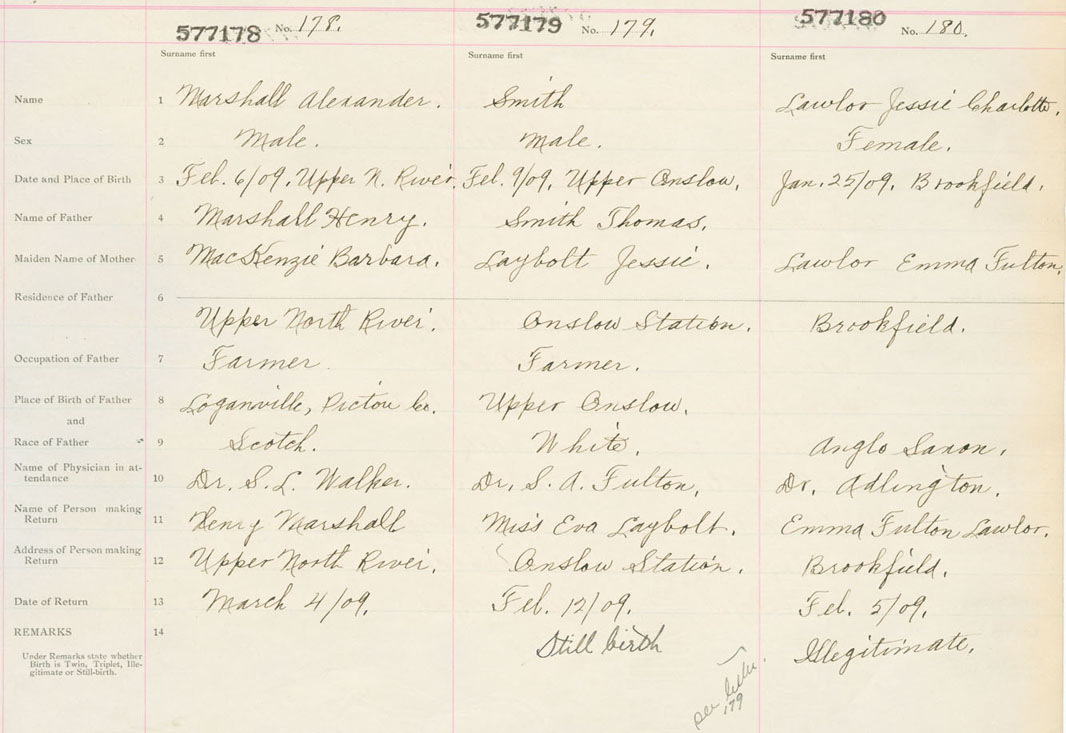 577178 No. 178. 577179 No. 179. 577180 No. 180.
Surname first Surname first Surname first
Name 1 Marshall Alexander. Smith Lawlor Jessie Charlotte.
Sex 2 Male. Male. Female.
Date and Place of Birth 3 Feb. 6/09. Upper N. River. Feb. 9/09. Upper Onslow. Jan. 25/09. Brookfield.
Name of Father 4 Marshall Henry. Smith Thomas.
Maiden Name of Mother 5 MacKenzie Barbara. Laybolt Jessie. Lawlor Emma Fulton.
Residence of Father 6
Upper North River. Onslow Station. Brookfield.
Occupation of Father 7 Farmer. Farmer.
Place of Birth of Father 8 Loganville, Pictou Co. Upper Onslow.
and
Race of Father 9 Scotch. White. Anglo Saxon.
Name of Physician in at-
tendance 10 Dr. S. L. Walker. Dr. S. A. Fulton. Dr. Adlington.
Name of Person making
Return 11 Henry Marshall Miss Eva Laybolt. Emma Fulton Lawlor.
Address of Person making
Return 12 Upper North River. Onslow Station. Brookfield.
Date of Return 13 March 4/09. Feb. 12/09. Feb. 5/09.
REMARKS 14 Still birth Illegitimate.
Under Remarks state whether
Birth is Twin, Triplet, Ille-
gitimate or Still-birth.
see letter
179